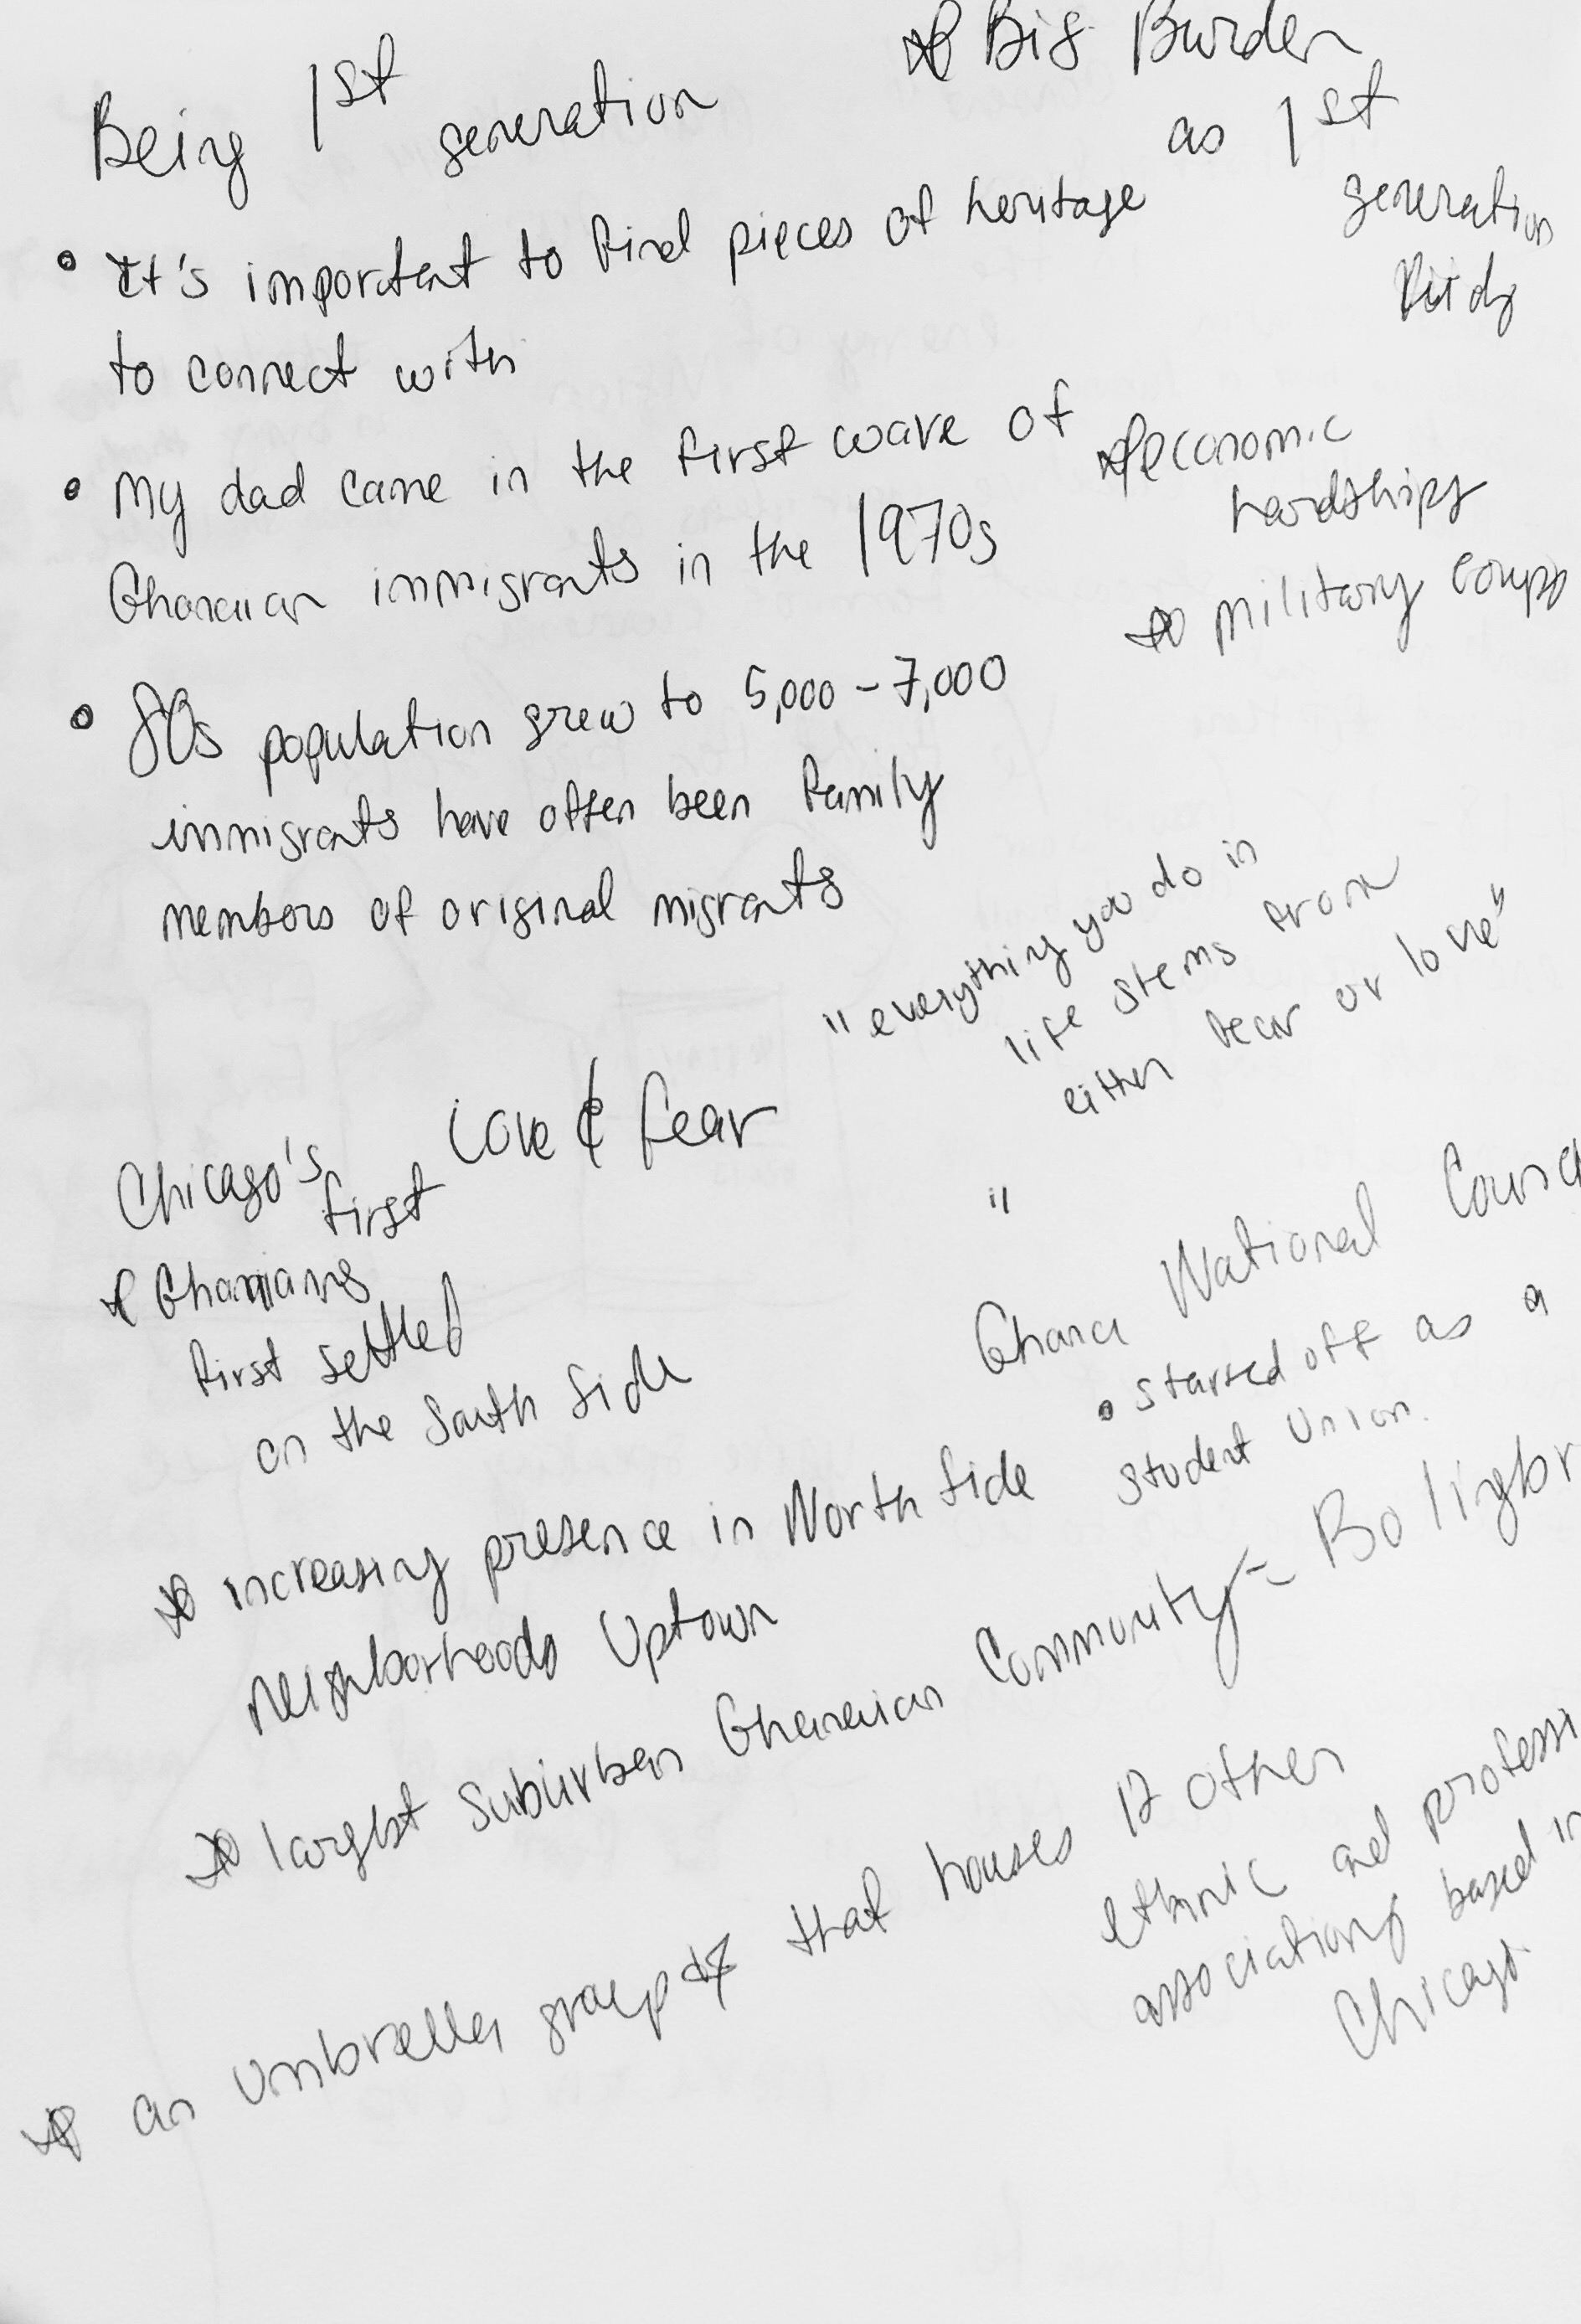 Being 1st generation
★ Big Burden
as 1st
generation
kids
• It's important to find pieces of heritage
to connect with
• My dad came in the first wave of
Ghanaian immigrants in the 1970s
★ economic
hardships
★ military coups
• 80s population grew to 5,000 - 7,000
immigrants have often been family
members of original migrants
"everything you do in
life stems from
either fear or love"
Love & fear
Chicago's
first
★ Ghanaians
first settled
on the South Side
"
Ghana National Counc
• started off as a
student union.
★ increasing presence in North Side
neighborhoods Uptown
★ largest suburban Ghanaian Community - Bolingbr
★ an umbrella group ★ that houses 12 other
ethnic and professi
associations based in
Chicago.